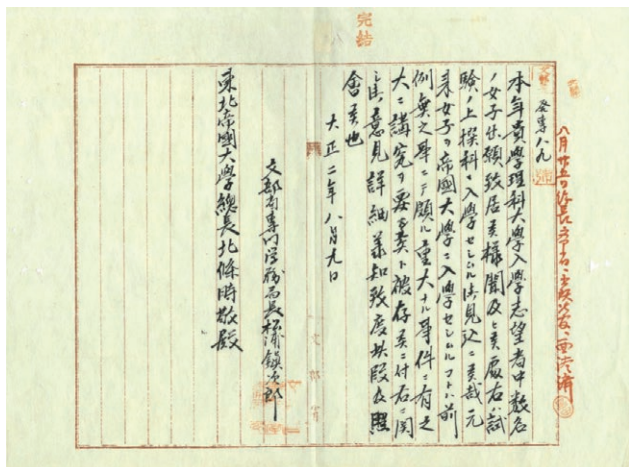 完結
發專八九
本年貴學理科大學入學志望者中數名
ノ女子出願致居候樣聞及候處右ハ試
驗ノ上撰科ニ入學セシムル御見込ニ候哉元
來女子ヲ帝國大學ニ入學セシムルコトハ前
例無之事ニテ頗ル重大ナル事件ニ有之
大ニ講究ヲ要シ候ト被存候ニ付右ニ関
シ御意見詳細承知致度此段及照
會候也
大正二年八月九日
文部省專門学務局長松浦鎭次郎
東北帝國大學總長北條時敬殿
文部省